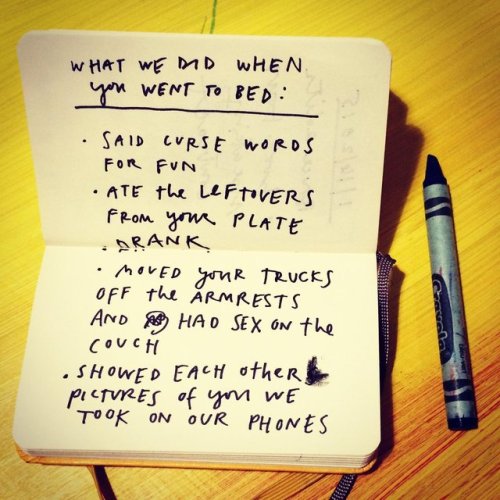 WHAT WE DID WHEN
you WENT TO BED:
• SAID CURSE WORDS
FOR FUN
• ATE the LEFTOVERS
FROM your PLATE
• DRANK
• MOVED your TRUCKS
OFF the ARMRESTS
AND HAD SEX ON the
COUCH
• SHOWED EACH other
PICTURES of you WE
TOOK ON OUR PHONES